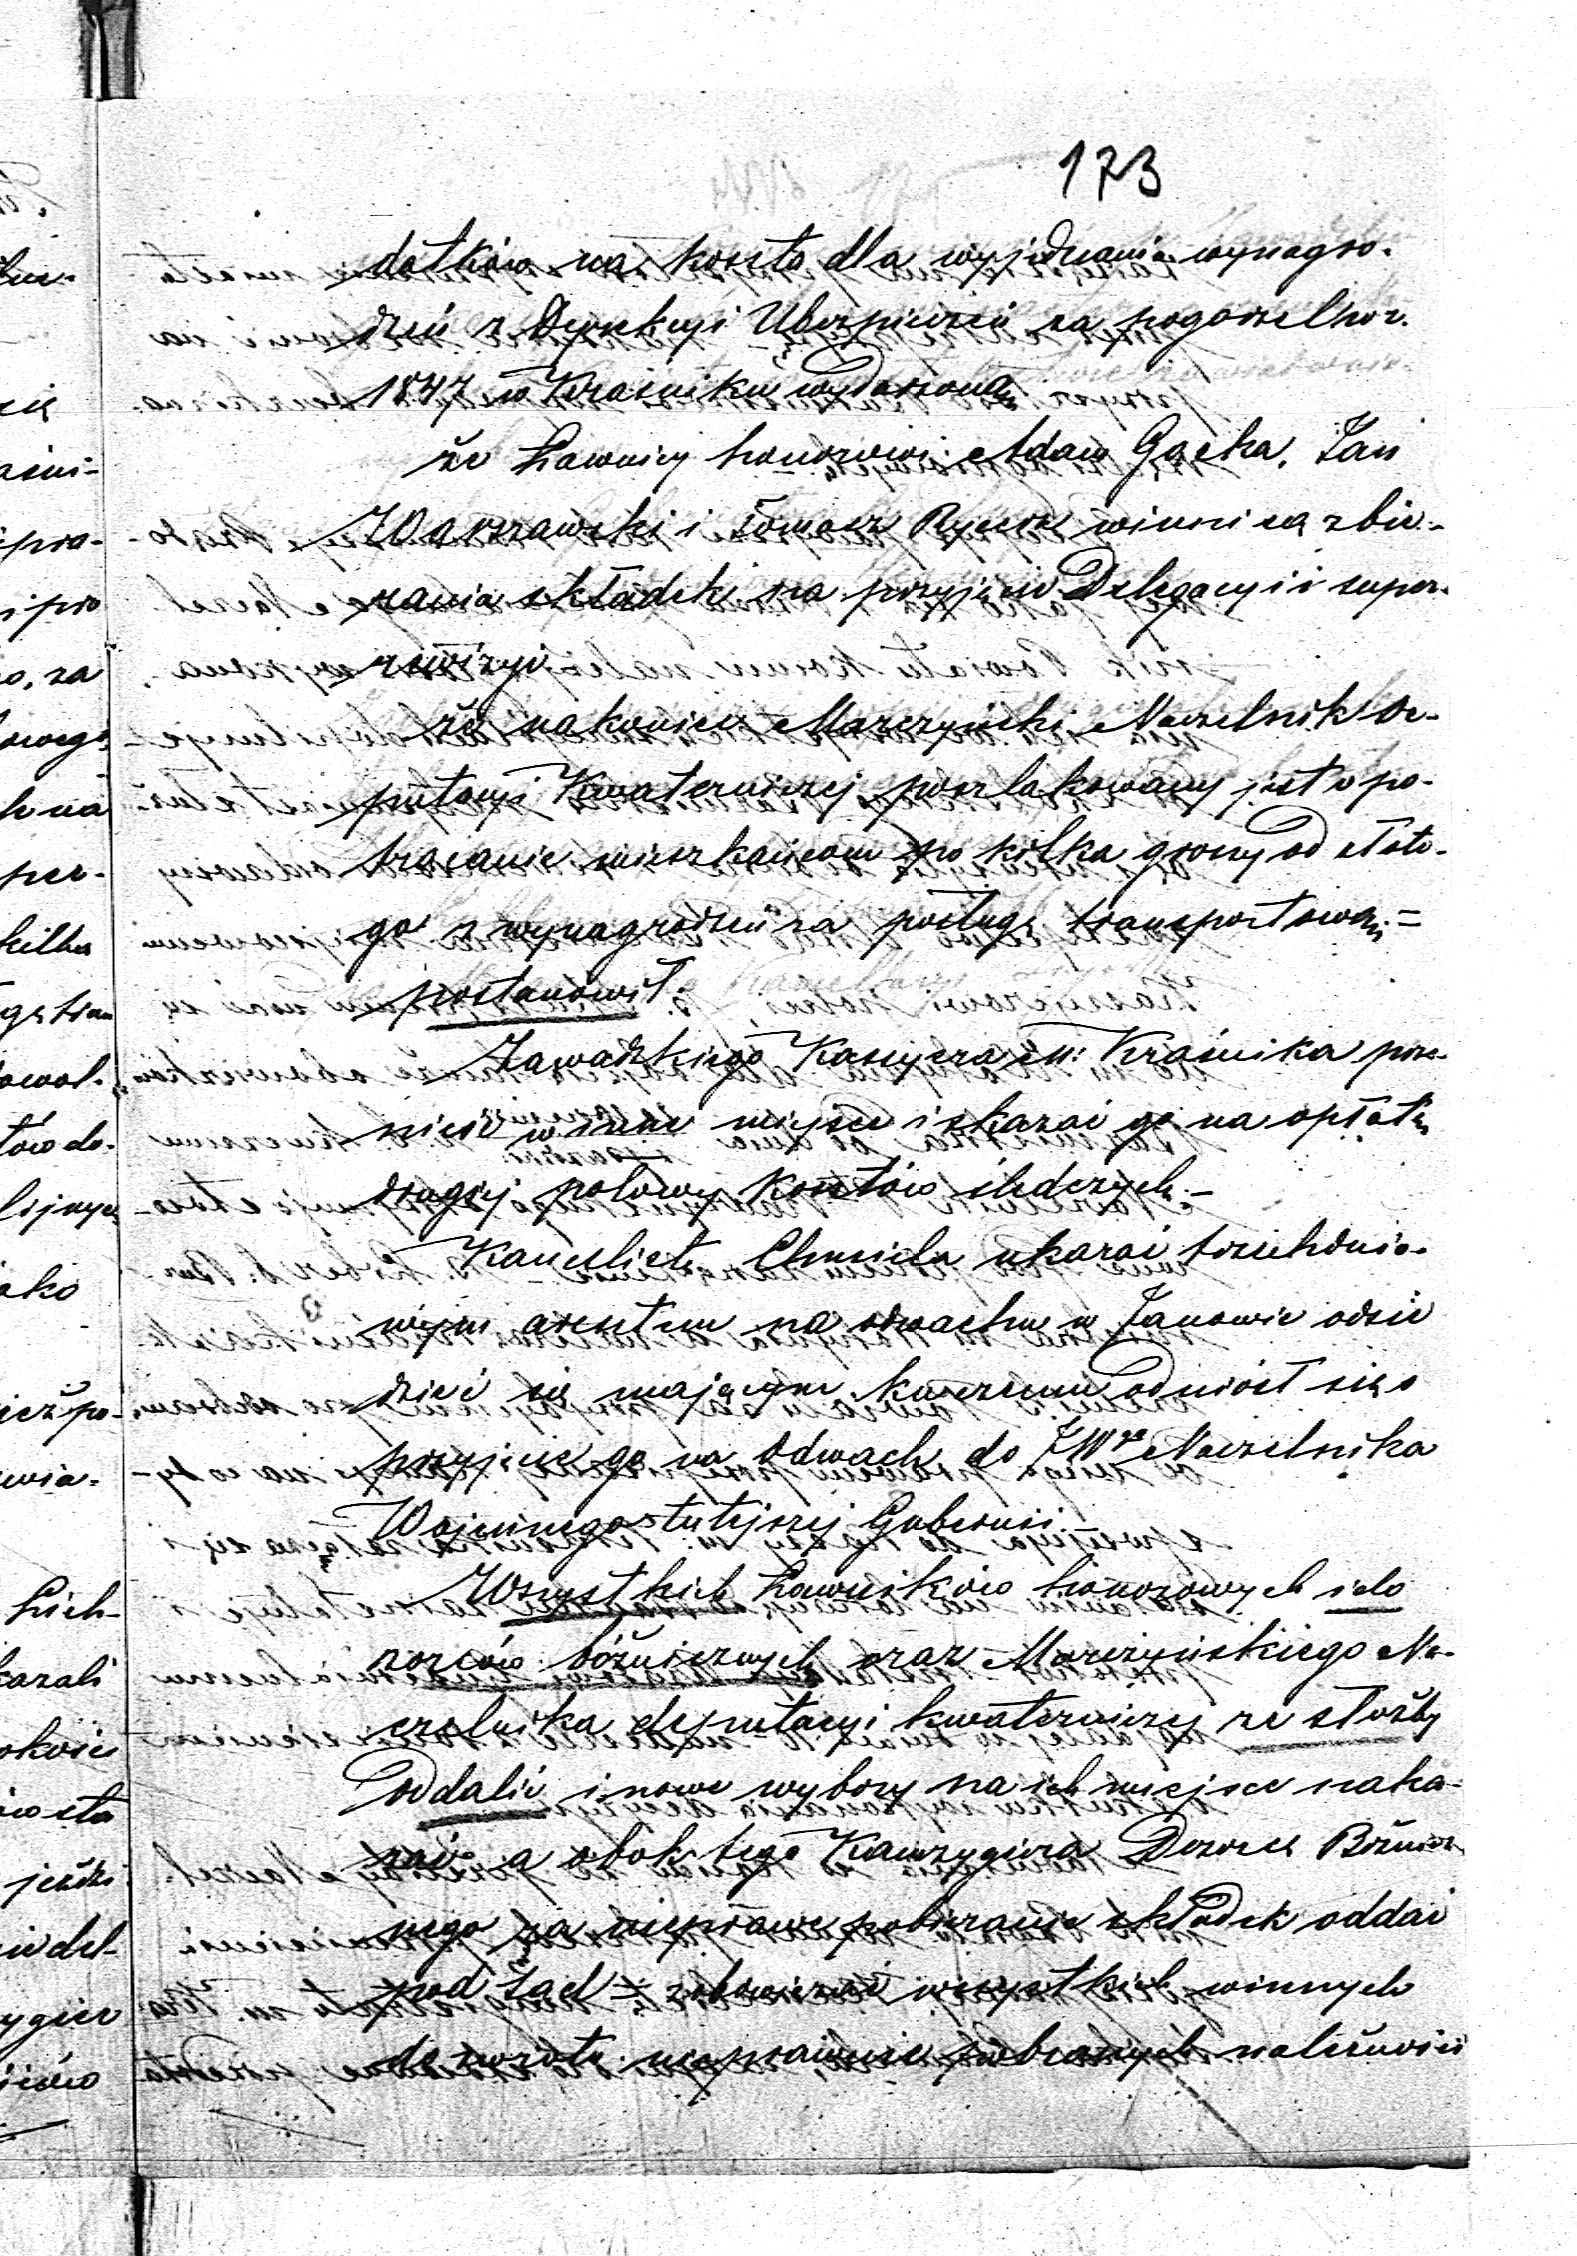 173
datków na koszta dla wyjednania wynagro-
dzeń z Dyrekcyi Ubezpieczeń za pogorzel w r.
1847 w Kraśniku wydarzoną
że Ławnicy honorowi Adam Gącka, Jan
Warszawski i Tomasz Rycerz winni są zbie-
rania składek na przyjęcie Delegacyi i super-
rewizyi.
że nakoniec Marczyński Naczelnik De-
putacyi Kwaterniczej poszlakowany jest o po-
trącanie mieszkańcom po kilka groszy od złote-
go z wynagrodzeń za posługę transportową =
postanowił:
Zawadzkiego Kassyera M: Kraśnika prze-
nieść w inne miejsce i skazać go na opłatę
drugiej połowy kosztów śledczych –
Kancelistę Chmiela ukarać trzechdnio-
wym aresztem na odwachu w Janowie odsie
dzieć się mającym, odniósł się o
przyjęcie go na Odwach do JW^go Naczelnika
Wojennego tutejszej Gubernii
Wszystkich Ławników honorowych i do
zorców bóżniczych oraz Marczyńskiego Na-
czelnika deputacyi kwaterniczej ze służby
oddalić i nowe wybory na ich miejsce naka-
zać a obok tego Kanczygiera Dozorcę Bóżnicz-
nego za nieprawe pobieranie składek oddać
pod Sąd i zobowiązać wszystkich winnych
do zwrotu nieprawnie pobranych należności
zię
ipra-
i pro
o, za
na
per-
kilka
tów do-
jako